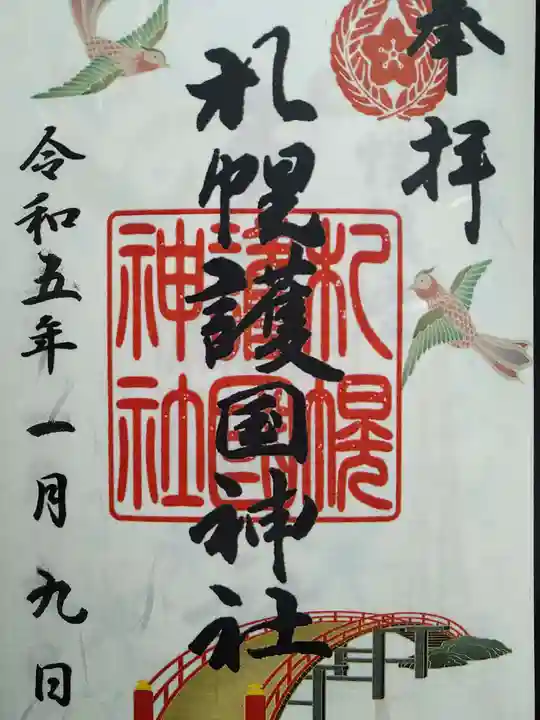 奉拝
札幌護国神社
札幌
護國
神社
令和五年一月九日